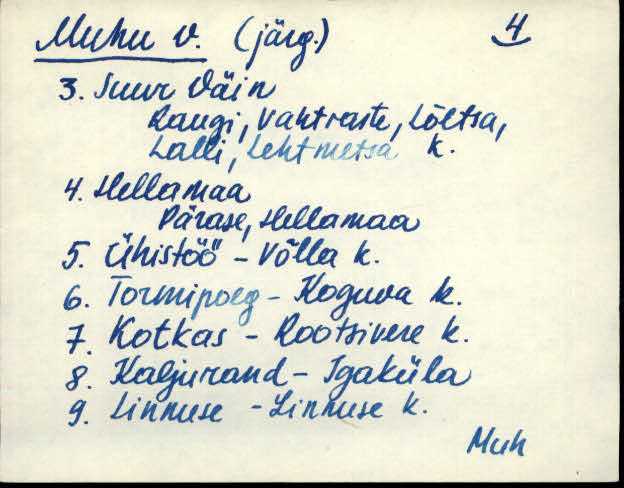 Muhu v. (järg.) 4
3. Suur Väin
Raugi, Vahtraste, Lõetsa,
Lalli, Lehtmetsa k.
4. Hellamaa
Pärase, Hellamaa
5. Ühistöö - Võlla k.
6. Tormipoeg - Koguva k.
7. Kotkas - Rootsivere k.
8. Kaljurand - Igaküla
9. Linnuse - Linnuse k.
Muh